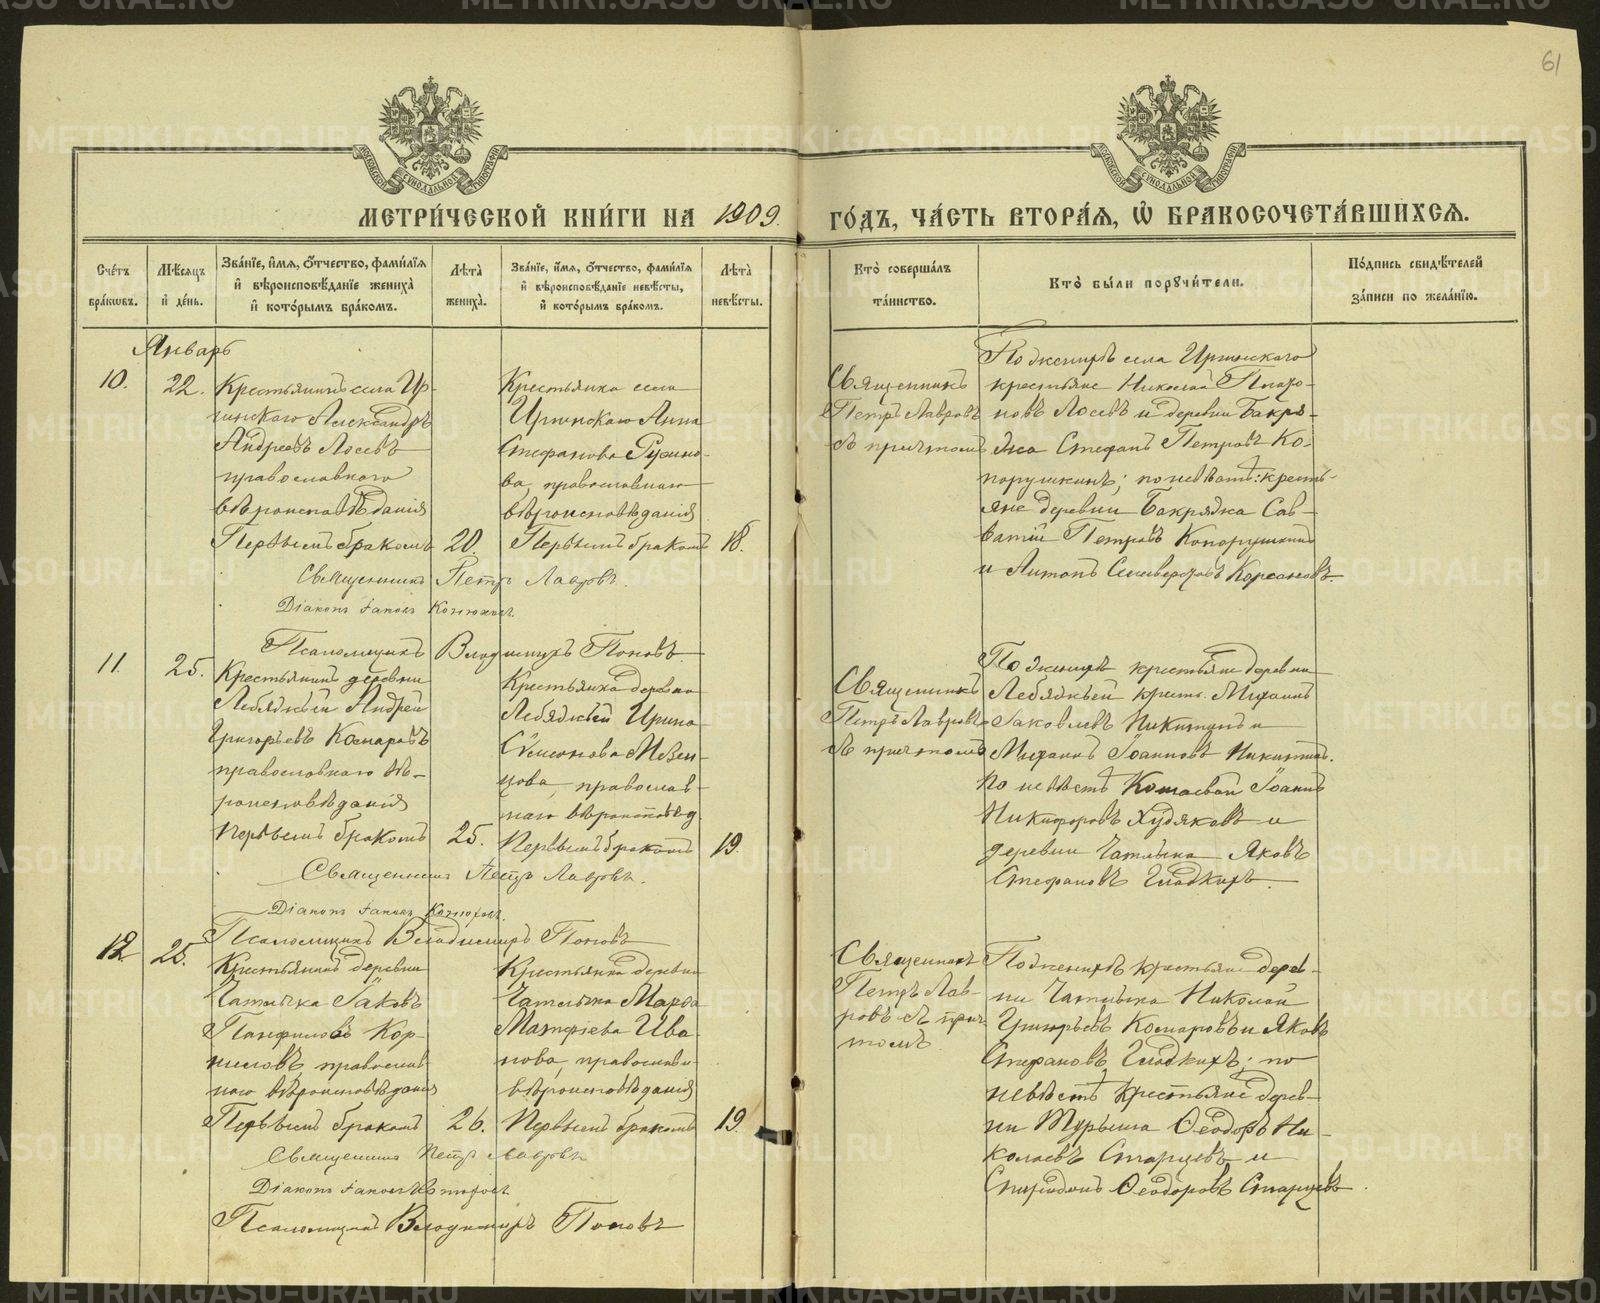 61
МЕТРИ́ЧЕСКОЙ КНИ́ГИ НА 1909. ГО́ДЪ, ЧА́СТЬ ВТОРА́Я, Ѡ БРАКОСОЧЕТА́ВШИХСЯ.
Сче́тъ бра́кѡвъ.
Мѣ́сяцъ и҆ де́нь.
Зва́нїе, и҆́мя, ѻ҆́тчество, фами́лїя и҆ вѣроисповѣ́данїе жениха̀ и҆ кото́рымъ бра́комъ.
Лѣ́та̀ жениха̀.
Зва́нїе, и҆́мя, ѻ҆́тчество, фами́лїя и҆ вѣроисповѣ́данїе невѣ́сты, и҆ кото́рымъ бра́комъ.
Лѣ́та̀ невѣ́сты.
Кто̀ соверша́лъ та́инство.
Кто̀ бы́ли порꙋчи́тели.
По́дпись свидѣ́телей за́писи по жела́нїю.
Январь
10.
22.
Крестьянинъ села Ир-
гинскаго Александръ
Андреевъ Лосевъ
православнаго
вѣроисповѣданія
Первымъ бракомъ
20.
Крестьянка села
Иргинскаго Анна
Стефанова Русино-
ва, православнаго
вѣроисповѣданія
Первымъ бракомъ
18.
Священникъ
Петръ Лавровъ
съ причтомъ
По женихѣ села Иргинскаго
крестьяне Николай Плато-
новъ Лосевъ и деревни Бакря-
жа Стефанъ Петровъ Ко-
порушкинъ; по невѣстѣ: кресть-
яне деревни Бакряжа Сав-
ватій Петровъ Копорушкинъ
и Антонъ
Священникъ Петръ Лавровъ.
Діаконъ
Псаломщикъ Владиміръ Поповъ
11.
25.
Крестьянинъ деревни
Лебяжьей Андрей
Григорьевъ Комаровъ
православнаго вѣ-
роисповѣданія
Первымъ бракомъ
25.
Крестьянка деревни
Лебяжьей Ирина
Сѵмеонова Мезен-
цова, православ-
наго вѣроисповѣд.
Первымъ бракомъ
19.
Священникъ
Петръ Лавровъ
съ причтомъ
По женихѣ крестьяне деревни
Лебяжьей крест. Михаилъ
Іаковлевъ Никитинъ и
Михаилъ Іоанновъ Никитинъ.
По невѣстѣ Іоаннъ
Никифоровъ Худяковъ и
деревни Чатлыка Яковъ
Стефановъ Гладкихъ.
Священникъ Петръ Лавровъ.
Діаконъ
Псаломщикъ Владиміръ Поповъ
12.
25.
Крестьянинъ деревни
Чатлыка Іаковъ
Панфиловъ Кор-
ниловъ, православ-
наго вѣроисповѣданія
Первымъ бракомъ
26.
Крестьянка деревни
Чатлыка Марѳа
Матѳіева Ива-
нова, православн.
вѣроисповѣданія
Первымъ бракомъ
19.
Священникъ
Петръ Лав-
ровъ съ прич-
томъ.
По женихѣ крестьяне дерев-
ни Чатлыка Николай
Григорьевъ Комаровъ и Яковъ
Стефановъ Гладкихъ; по
невѣстѣ крестьяне дерев-
ни Турыша Ѳеодоръ Ни-
колаевъ Старцевъ и
Спиридонъ Ѳеодоровъ Старцевъ.
Священникъ Петръ Лавровъ
Діаконъ
Псаломщикъ Владиміръ Поповъ
METRIKI.GASO-URAL.RU